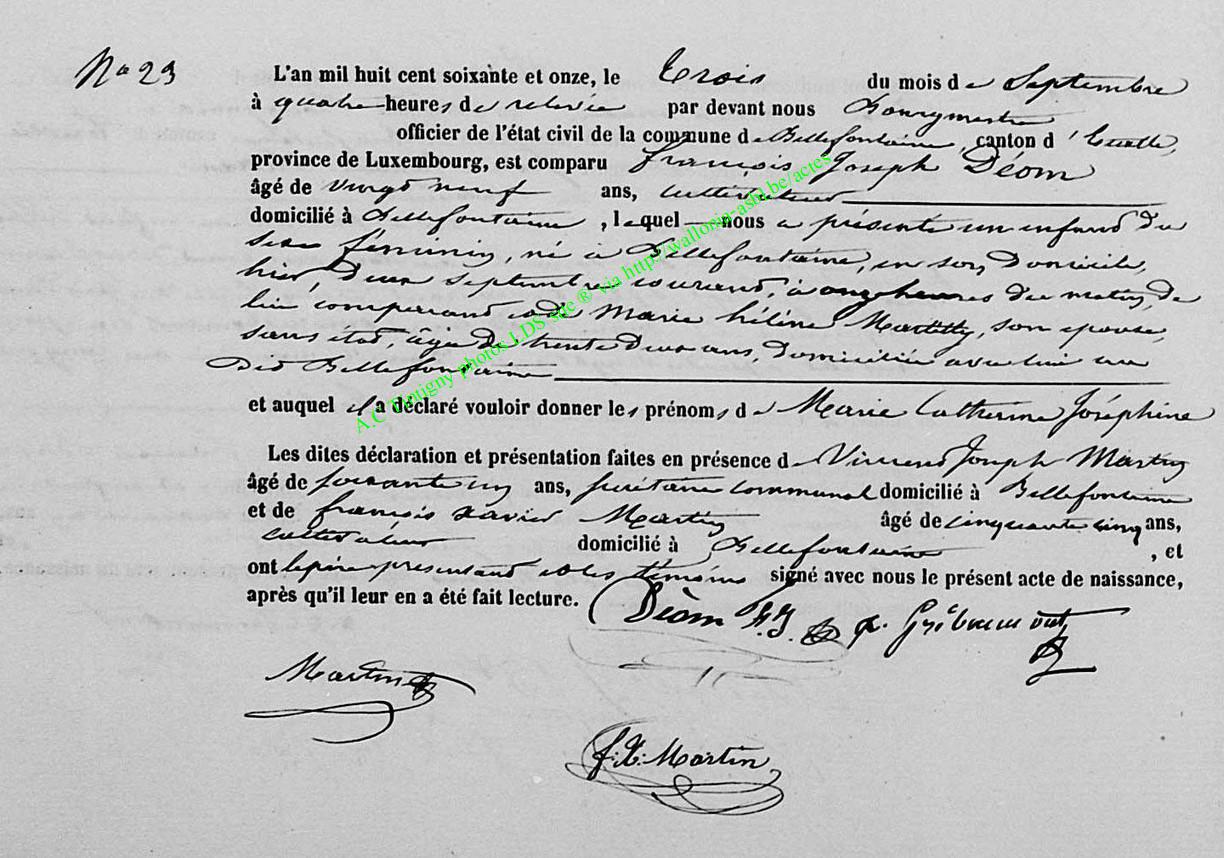 No 23
L'an mil huit cent soixante et onze, le trois du mois de Septembre
à quatre heures de relevée par devant nous Bourgmestre
officier de l'état civil de la commune de Bellefontaine, canton d'Etalle,
province de Luxembourg, est comparu françois Joseph Déom
âgé de vingt neuf ans, cultivateur
domicilié à Bellefontaine, lequel nous a présenté un enfant du
sexe féminin, né à Bellefontaine, en son domicile,
hier deux Septembre courant, à onze heures du matin, de
lui comparant et de Marie hélène son épouse,
sans état, âgée de trente deux ans, domiciliée avec lui au
dit Bellefontaine
et auquel il a déclaré vouloir donner les prénoms de Marie Catherine Joséphine
Les dites déclaration et présentation faites en présence de Vincent Joseph Martin
âgé de ans, communal domicilié à Bellefontaine
et de françois xavier Martin âgé de cinquante cinq ans,
cultivateur domicilié à Bellefontaine, et
ont le père présentant et les témoins signé avec nous le présent acte de naissance,
après qu'il leur en a été fait lecture. Déom F.J.
Martin
f.X. Martin
A.C Tintigny photos LDS site ® via http://wallonia-asbl.be/actes